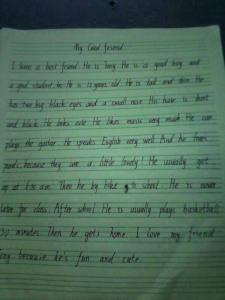 My Good friend
I have a best friend. He is Tony. He is a good boy and
a good student, too. He is 12 years old. He is tall and thin. He
has two big black eyes and a small nose. His hair is short
and black. He looks cute. He likes music very much. He can
plays the guitar. He speaks English very well. And he likes
pandas, because they are a little lovely! He usually get
up at 6:30 a.m. Then he by bike to school. He is never
late for class. After school. He is usually plays basketball
30 minutes. Then he gets home. I love my friend
Tony. because he's fun and cute.